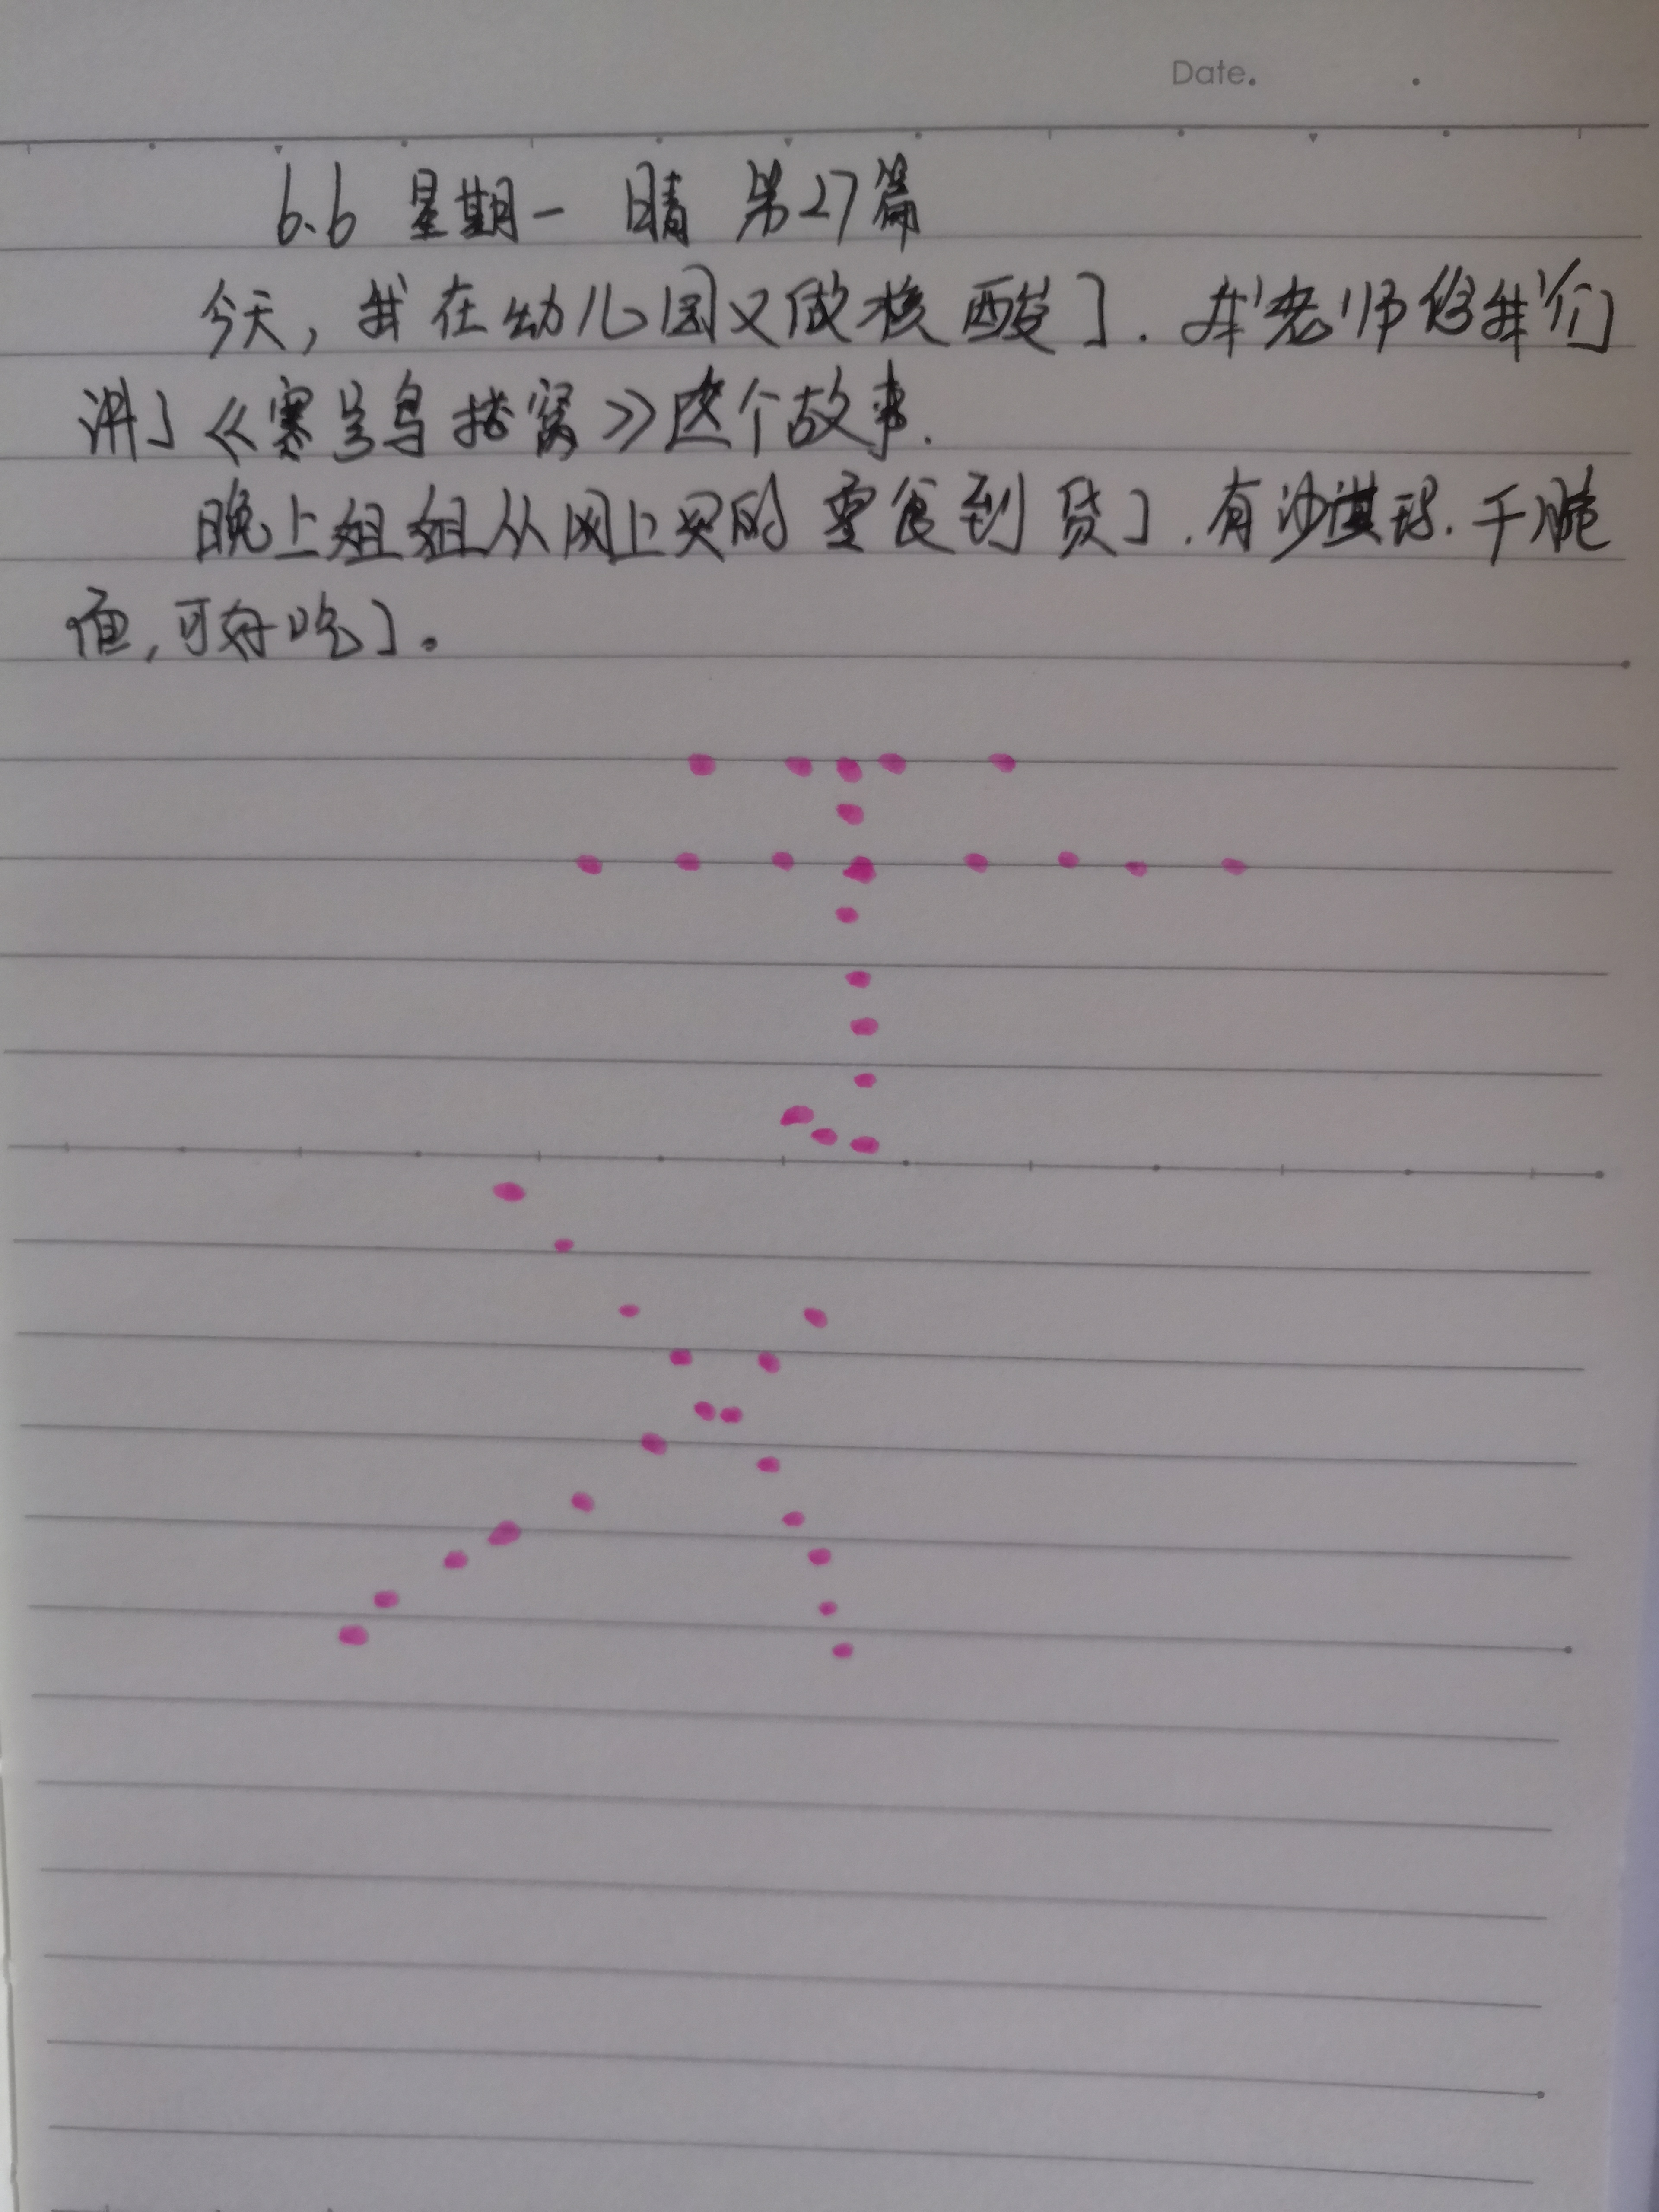 Date.
6.6 星期一 晴 第27篇
今天，我在幼儿园又做核酸了．老师给我们
讲了《寒号鸟搭窝》这个故事．
晚上姐姐从网上买的零食到货了．有沙淇玛．干脆
面，可好吃了。